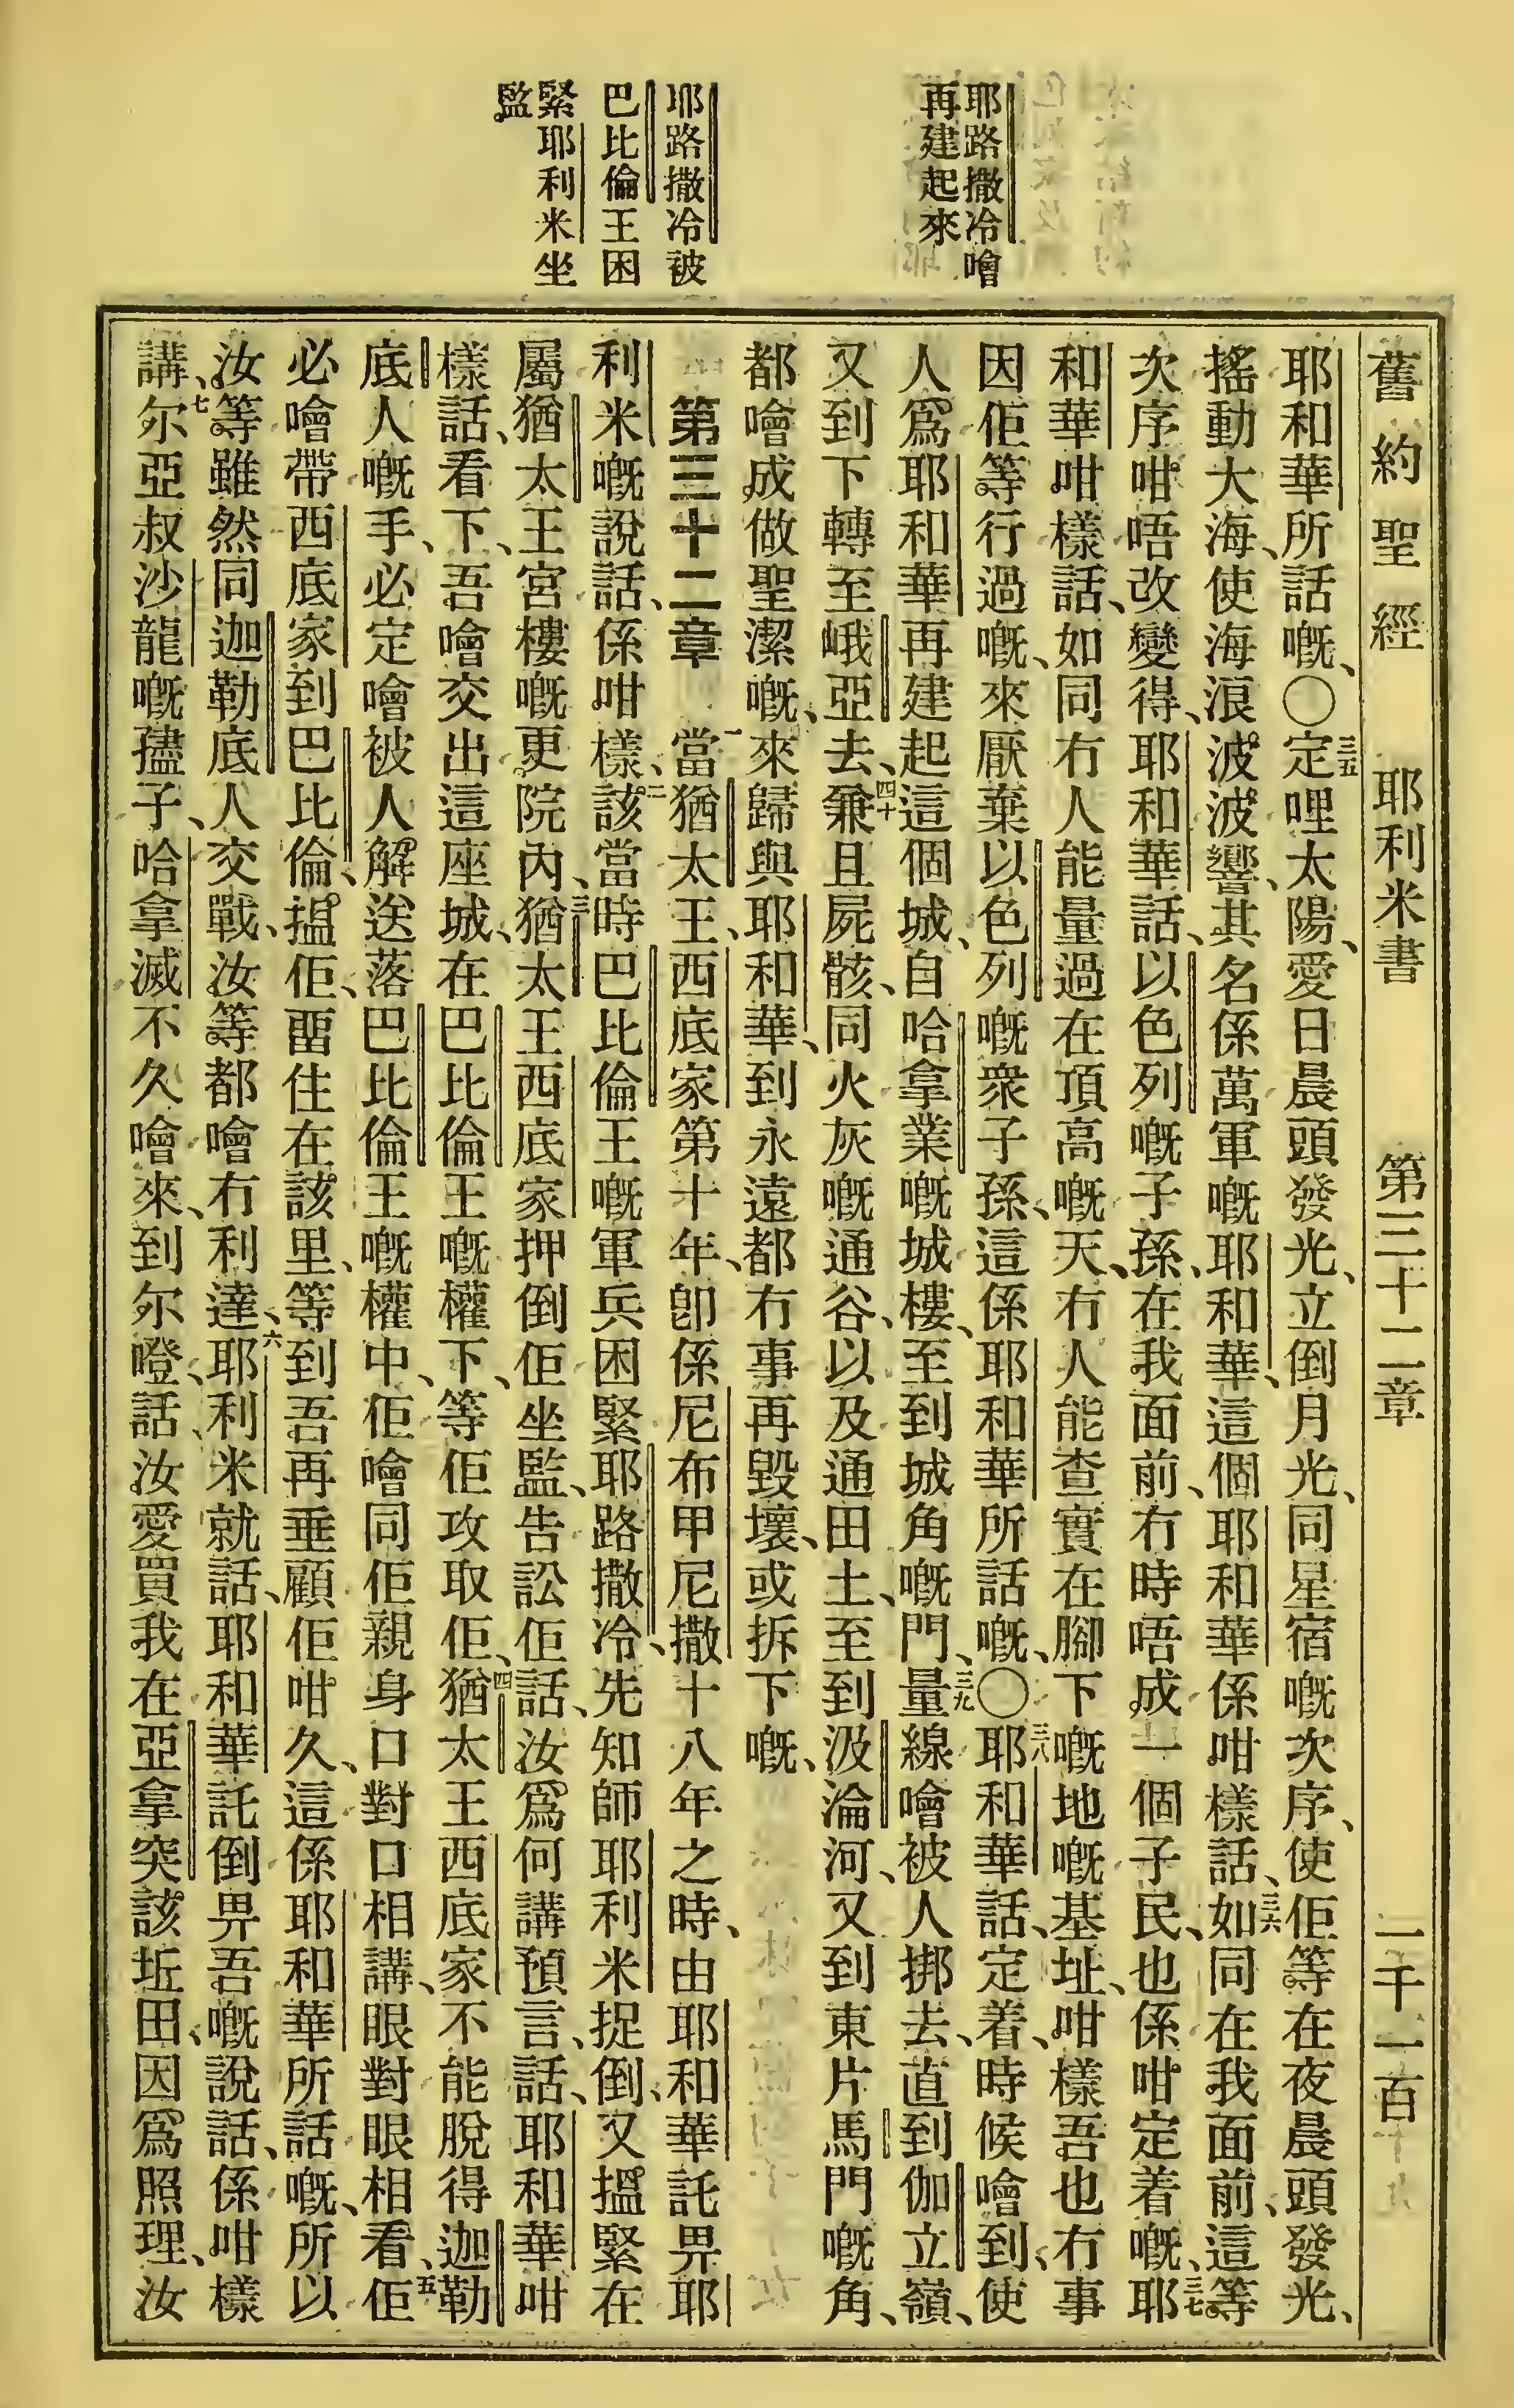 耶路撒冷噲
再建起來
耶路撒冷被
巴比倫王困
緊耶利米坐
監
舊約聖經 耶利米書 第三十二章 一千一百
耶和華所話嘅、〇三五定哩太陽、愛日晨頭發光、立倒月光、同星宿嘅次序、使佢等在夜晨頭發光、
搖動大海、使海浪波波響、其名係萬軍嘅耶和華、這個耶和華係咁樣話、三六如同在我面前、這等
次序咁唔改變得、耶和華話、以色列嘅子孫、在我面前、冇時唔成一個子民、也係咁定着嘅、三七耶
和華咁樣話、如同冇人能量過在頂高嘅天、冇人能查實在腳下嘅地嘅基址、咁樣吾也冇事
因佢等行過嘅、來厭棄以色列嘅衆子孫、這係耶和華所話嘅、〇三八耶和華話、定着、時候噲到、使
人爲耶和華再建起這個城、自哈拿業嘅城樓、至到城角嘅門、三九量線噲被人揤去、直到伽立嶺、
又到下轉至峨亞去、四十兼且屍骸、同火灰嘅通谷、以及通田土、至到汲淪河、又到東片馬門嘅角、
都噲成做聖潔嘅、來歸與耶和華、到永遠都冇事再毀壞、或拆下嘅、
第三十二章 一當猶太王、西底家第十年、卽係尼布甲尼撒十八年之時、由耶和華託畀耶
利米嘅說話、係咁樣、二該當時巴比倫王嘅軍兵困緊耶路撒冷、先知師耶利米捉倒、又搵緊在
屬猶太王宮樓嘅更院內、三猶太王西底家押倒佢坐監、告訟佢話、汝爲何講預言、話、耶和華咁
樣話、看下、吾噲交出這座城、在巴比倫王嘅權下、等佢攻取佢、四猶太王西底家不能脫得迦勒
底人嘅手、必定噲被人解送落巴比倫王嘅權中、佢噲同佢親身口對口相講、眼對眼相看、五佢
必噲帶西底家到巴比倫、搵佢、畱住在該里、等到吾再垂顧佢咁久、這係耶和華所話嘅、所以
汝等雖然同迦勒底人交戰、汝等都噲冇利達、六耶利米就話、耶和華託倒畀吾嘅說話、係咁樣
講、七尔亞叔沙龍嘅孻子、哈拿滅不久噲來、到尔噔、話、汝愛買我在亞拿突該坵田、因爲照理、汝